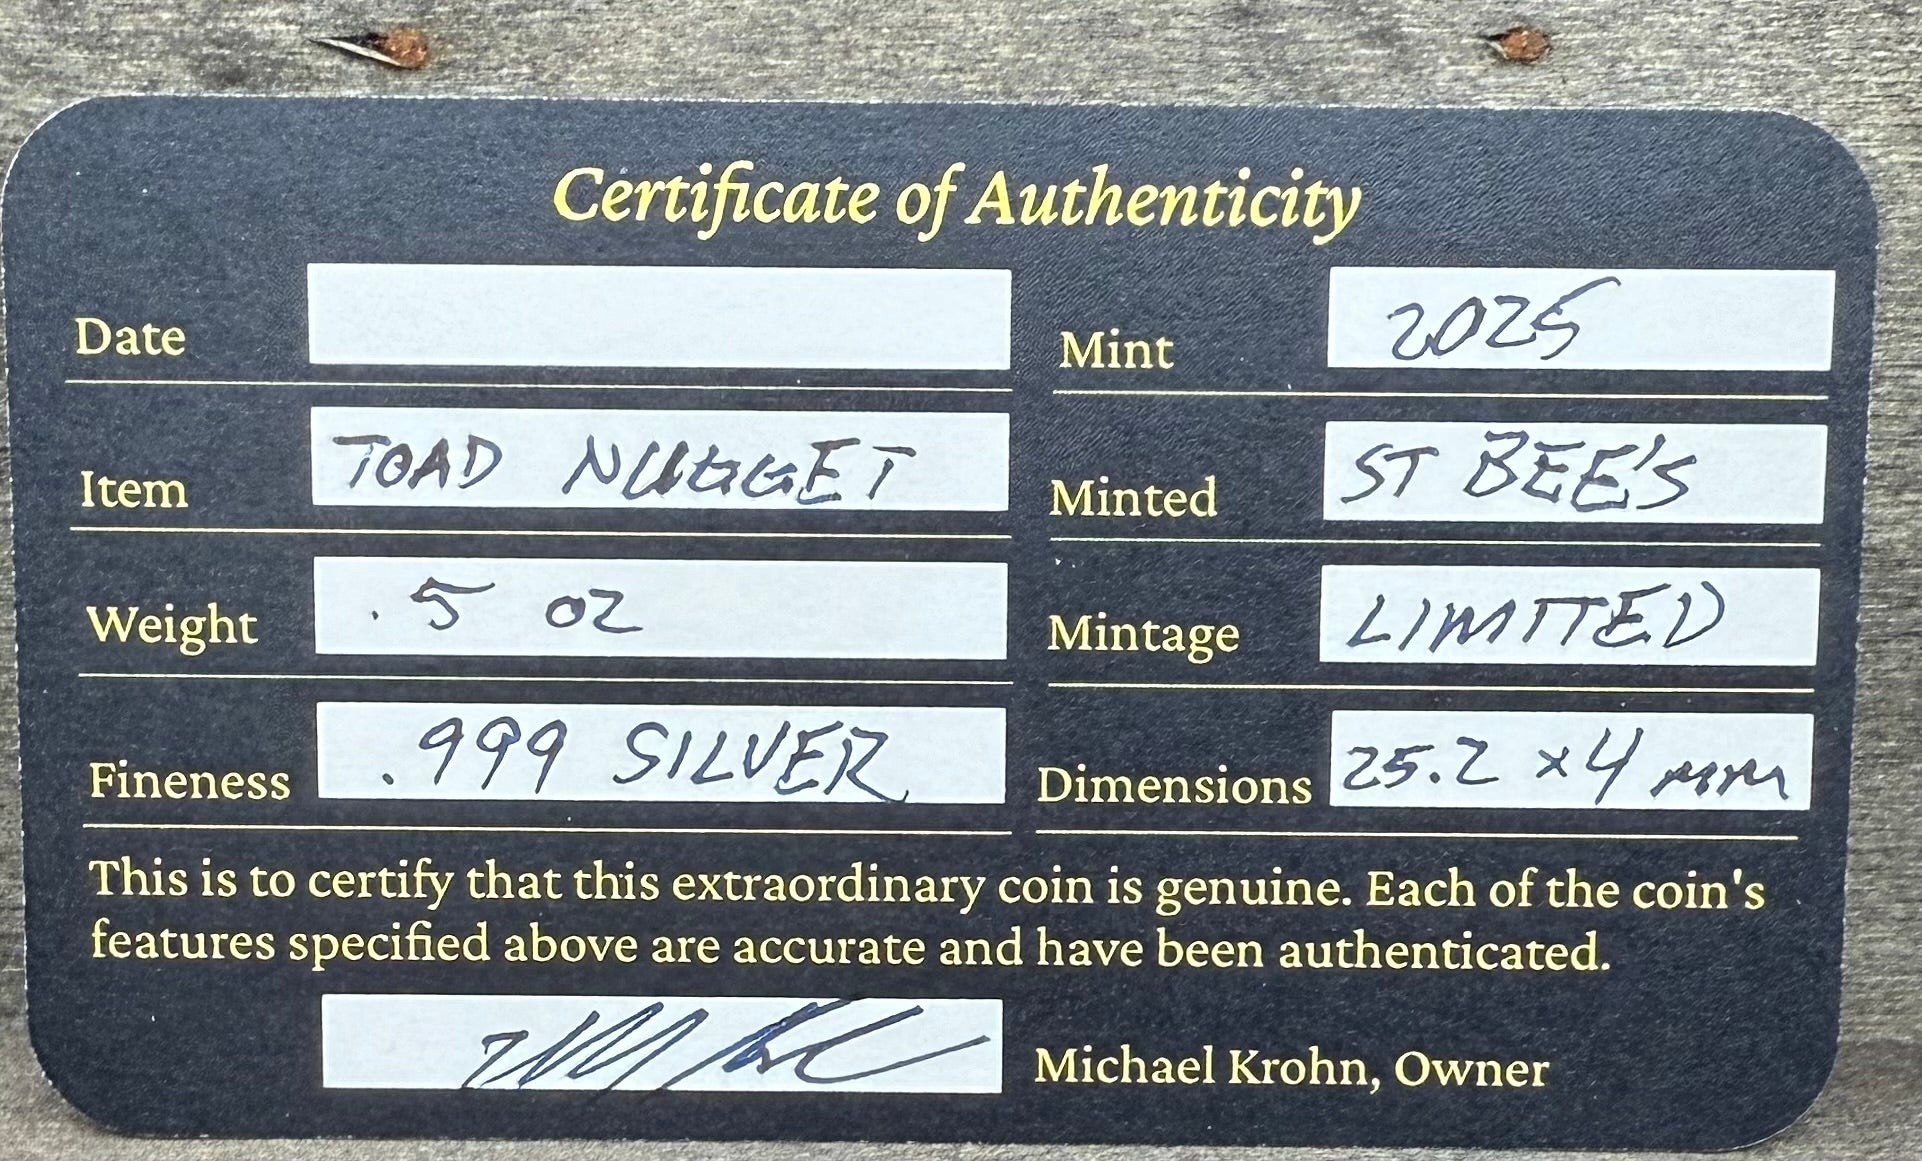 Certificate of Authenticity
Date
Mint 2025
Item TOAD NUGGET
Minted ST BEE'S
Weight .5 OZ
Mintage LIMITED
Fineness .999 SILVER
Dimensions 25.2 x 4 mm
This is to certify that this extraordinary coin is genuine. Each of the coin's
features specified above are accurate and have been authenticated.
Michael Krohn, Owner